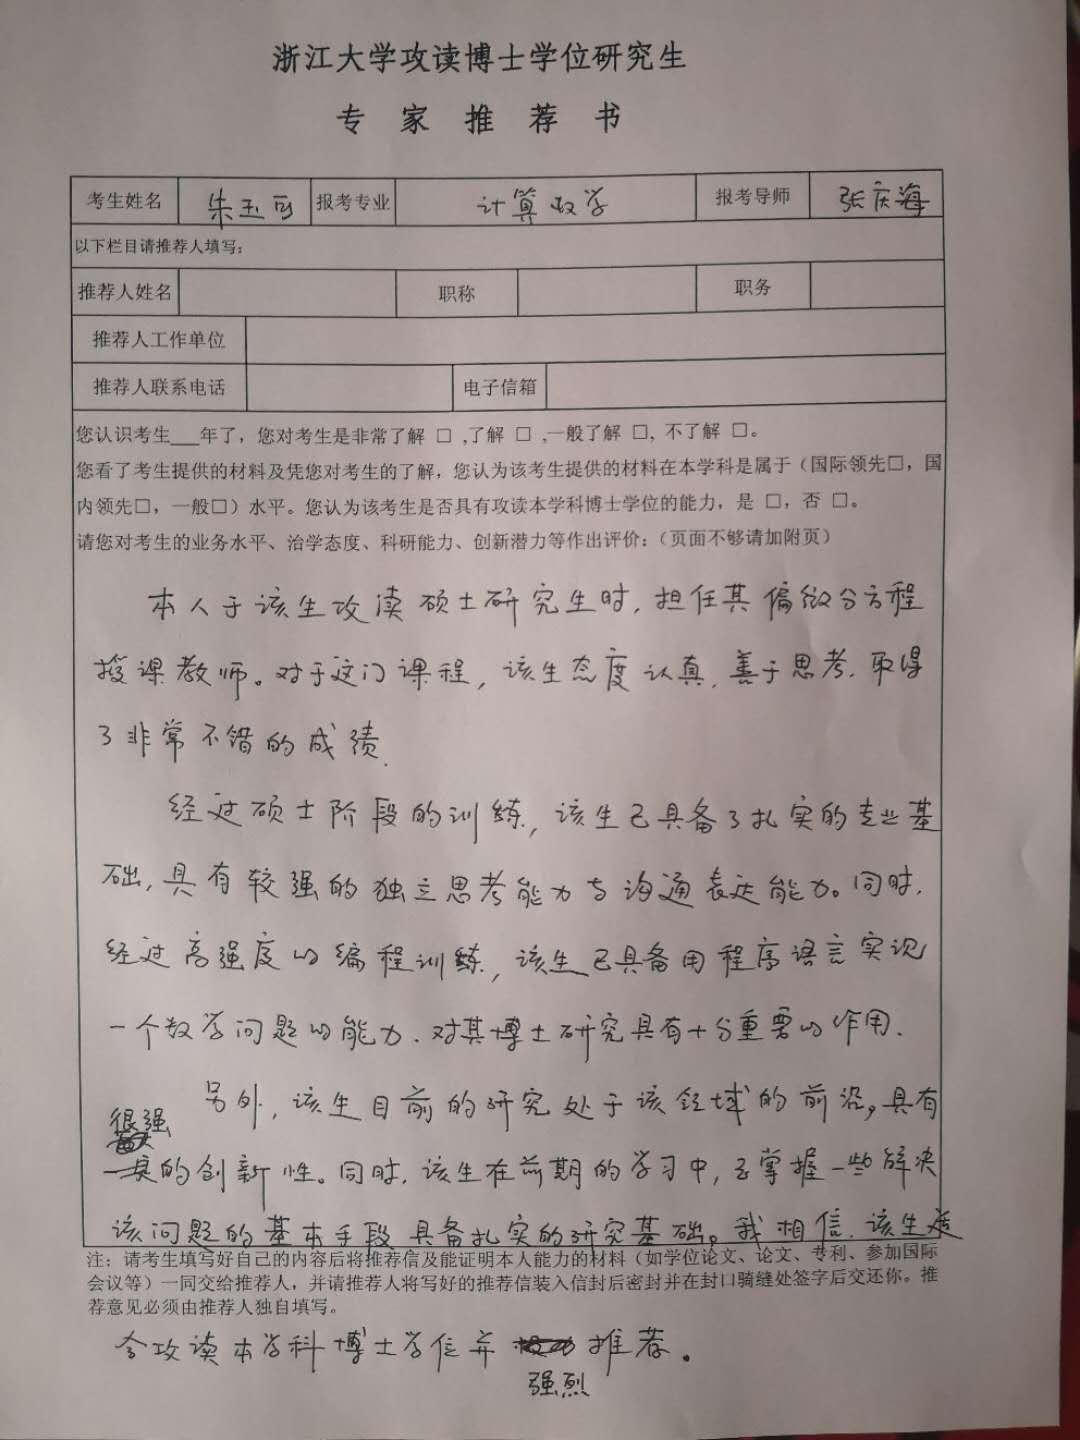 浙江大学攻读博士学位研究生
专 家 推 荐 书
考生姓名 朱玉可 报考专业 计算数学 报考导师 张庆海
以下栏目请推荐人填写：
推荐人姓名 职称 职务
推荐人工作单位
推荐人联系电话 电子信箱
您认识考生___年了，您对考生是非常了解 □ ,了解 □ ,一般了解 □, 不了解 □。
您看了考生提供的材料及凭您对考生的了解，您认为该考生提供的材料在本学科是属于（国际领先□，国
内领先□，一般□）水平。您认为该考生是否具有攻读本学科博士学位的能力，是 □，否 □。
请您对考生的业务水平、治学态度、科研能力、创新潜力等作出评价：（页面不够请加附页）
本人于该生攻读硕士研究生时，担任其偏微分方程
授课教师。对于这门课程，该生态度认真，善于思考，取得
了非常不错的成绩.
经过硕士阶段的训练，该生已具备了扎实的专业基
础，具有较强的独立思考能力与沟通表达能力。同时，
经过高强度的编程训练，该生已具备用程序语言实现
一个数学问题的能力．对其博士研究具有十分重要的作用．
另外，该生目前的研究处于该领域的前沿，具有
很强
的创新性。同时，该生在前期的学习中，已掌握一些解决
该问题的基本手段，具备扎实的研究基础。我相信，该生适
注：请考生填写好自己的内容后将推荐信及能证明本人能力的材料（如学位论文、论文、专利、参加国际
会议等）一同交给推荐人，并请推荐人将写好的推荐信装入信封后密封并在封口骑缝处签字后交还你。推
荐意见必须由推荐人独自填写。
合攻读本学科博士学位并 推荐．
强烈